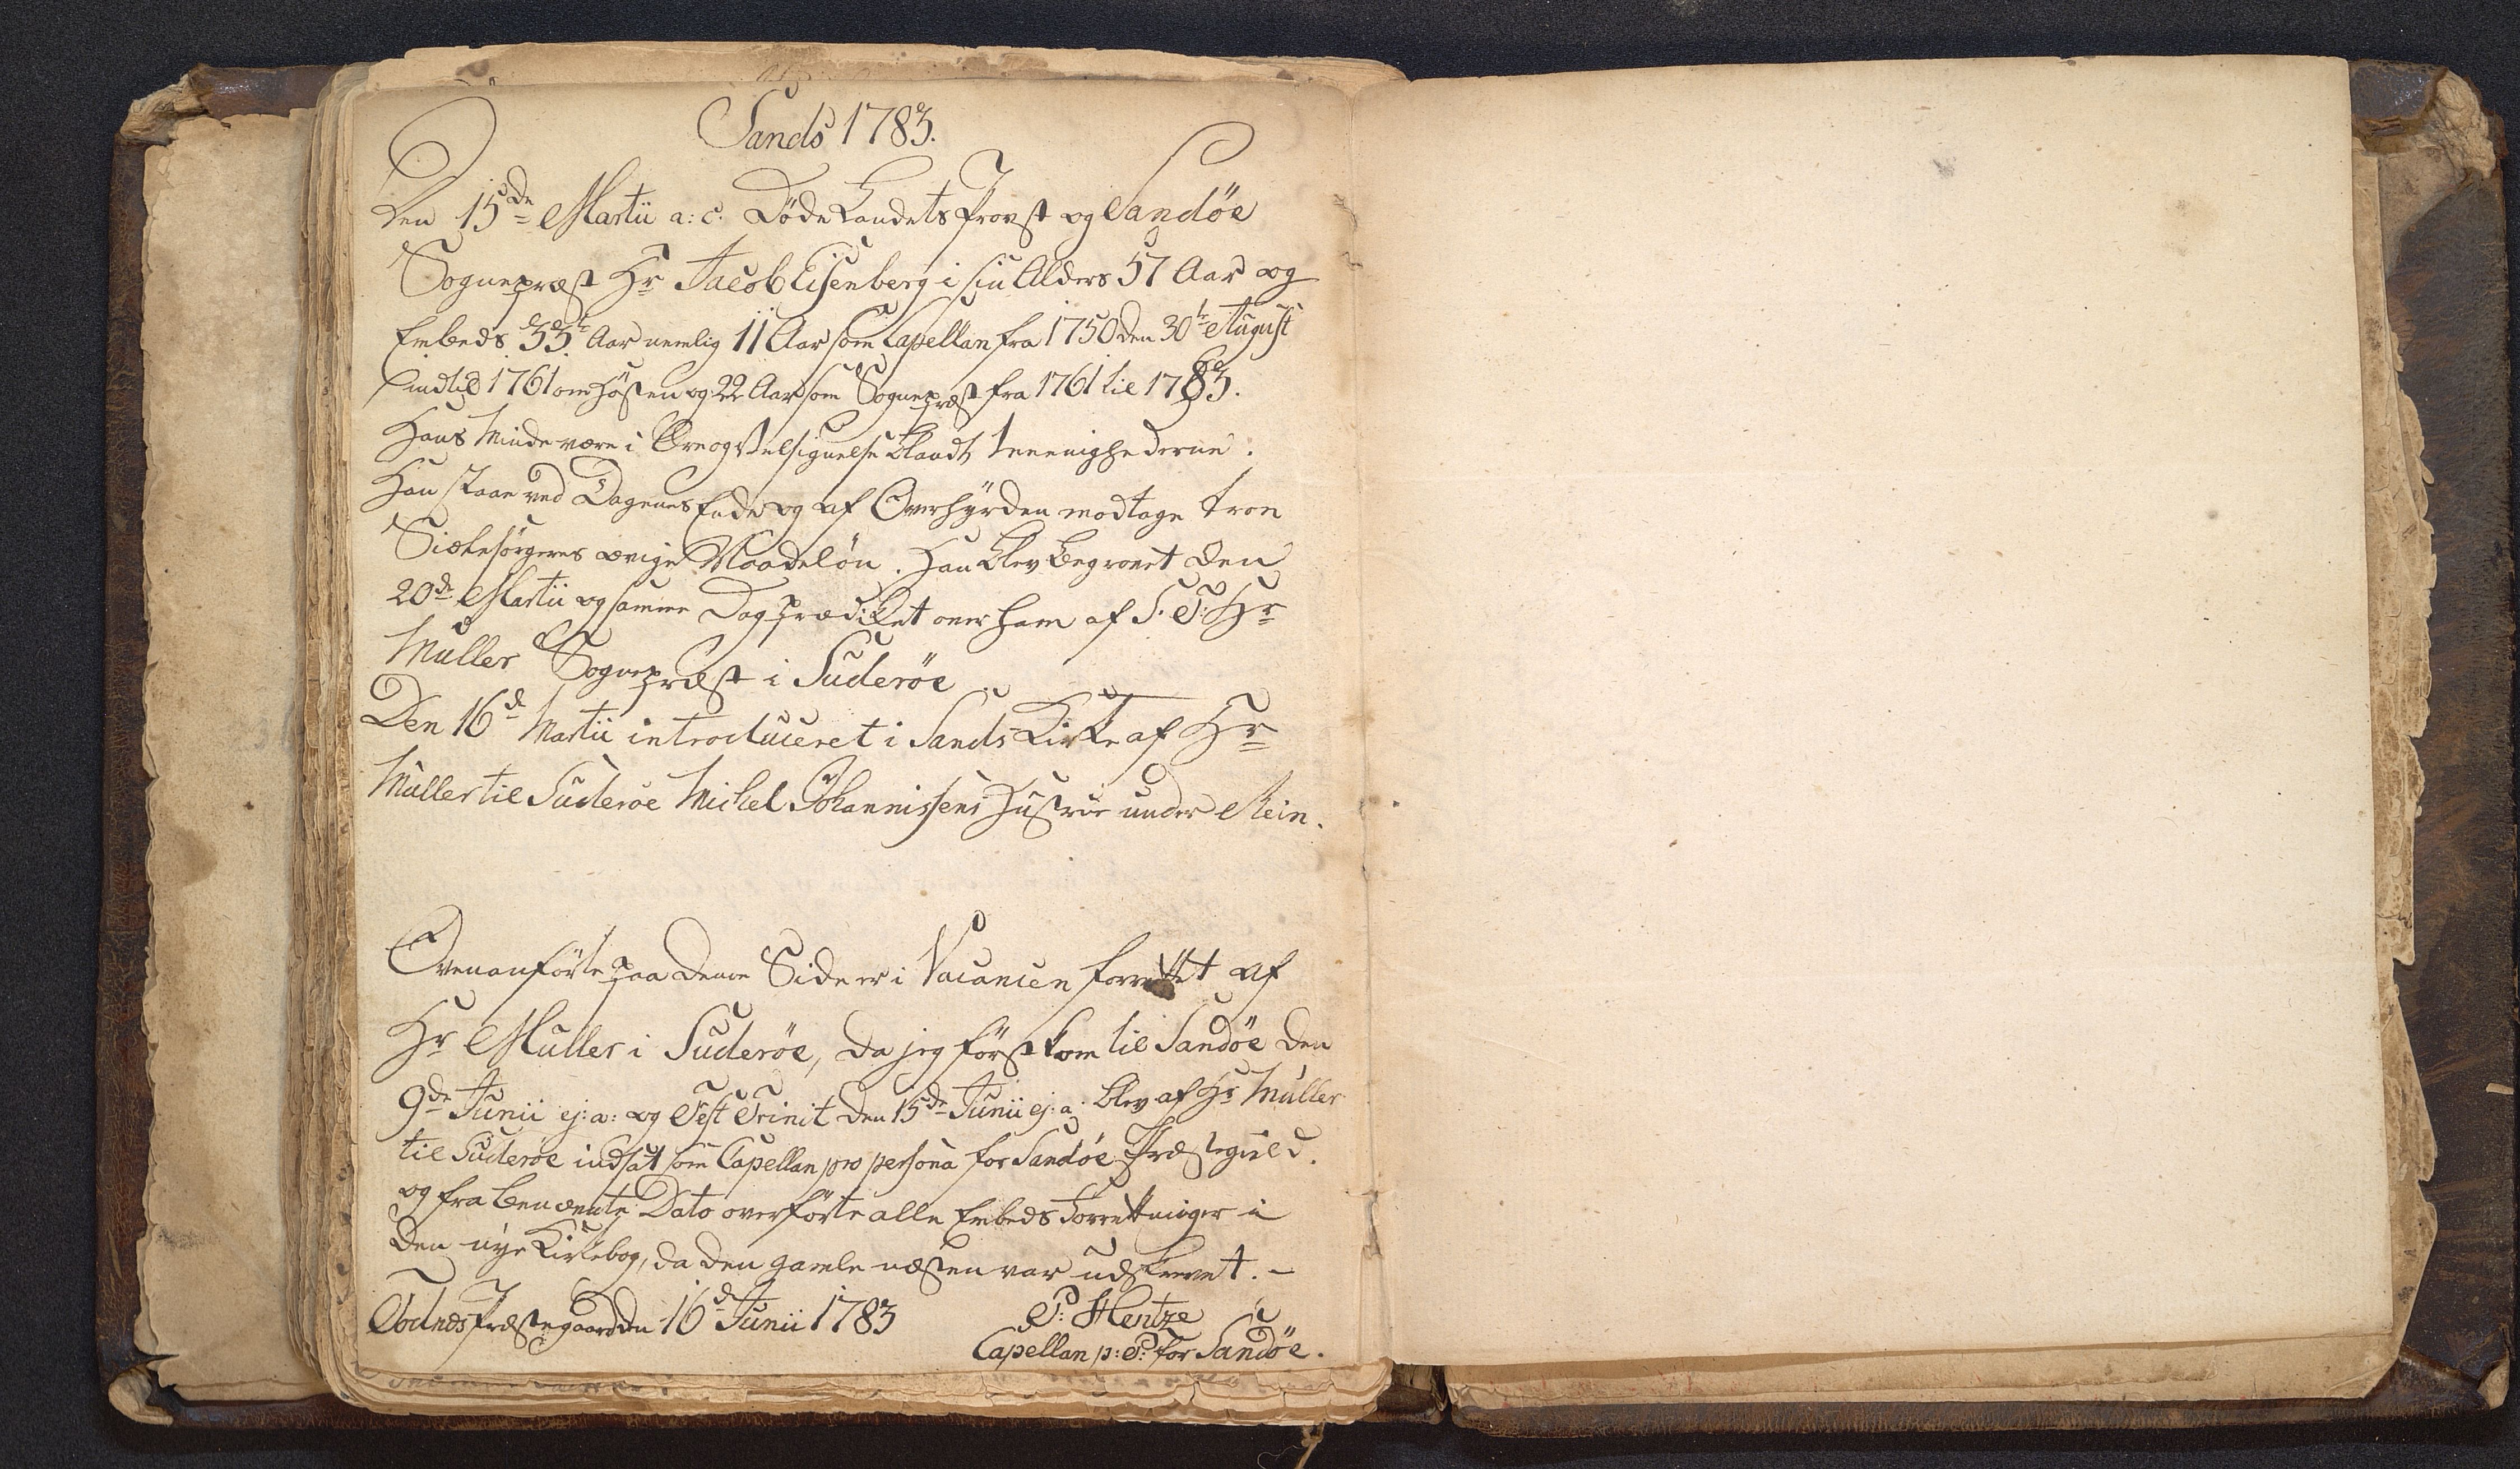 Sands 1783.
Den 15de Martii a: c. Døde Landets Provst og Sandöe
Sognepræst Hr Jacob Eisenberg i sin Alders 57 Aar og
Embeds 33te Aar nemlig 11 Aar som Capellan fra 1750 den 30te August
indtil 1761 om Høsten og 22 Aar som Sognepræst fra 1761 til 1783.
Hans Minde være i Ære og Velsignelse blandt Meenighederne.
Han staae ved Dagenes Ende og af Overhyrden modtage troe
Siælesørgeres ævige Naadelön. Han blev begravet den
20de Martii og samme Dag prædiket over ham af S: T: Hr
Müller Sognepræst i Suderöe
Den 16de Martii introduceret i Sands Kirke af Hr
Müller til Suderöe Michel Johannissens Hustrue under Rein.
Ovenanførte paa denne Side er i Vacancen forrettet af
Hr Müller i Suderöe, da jeg först kom til Sandöe den
9de Junii ej: a: og Fest Trinit den 15de Junii ej: a: blev af Hr Müller
til Suderöe indsat som Capellan pro persona for Sandöe Præstegield.
og fra benævnte Dato overförte alle Embeds Forrettninger i
den nye Kirkebog, da den gamle næsten var udskrevet. –
Todnæs Præstegaard den 16de Junii 1783
P: Hentze
Capellan p: P: for Sandöe.